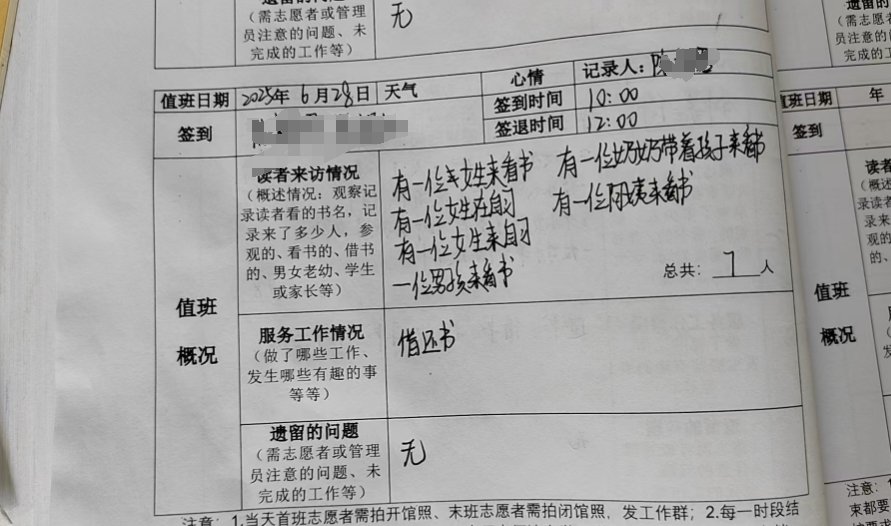 遗留的问题
(需志愿者或管理
员注意的问题、未
完成的工作等)
无
值班日期
2025年6月28日
天气
心情
记录人：陈
签到
签到时间
10:00
签退时间
12:00
值班
概况
读者来访情况
(概述情况：观察记
录读者看的书名，记
录来了多少人，参
观的、看书的、借书
的、男女老幼、学生
或家长等)
有一位女生来看书
有一位奶奶带着孩子来看书
有一位女生在自习
有一位阿姨来看书
有一位女生来自习
一位男孩来看书
总共：7人
服务工作情况
(做了哪些工作、
发生哪些有趣的事
等等)
借还书
遗留的问题
(需志愿者或管理
员注意的问题、未
完成的工作等)
无
注意：1.当天首班志愿者需拍开馆照、末班志愿者需拍闭馆照，发工作群；2.每一时段结
值班日期
年
签到
值班
概况